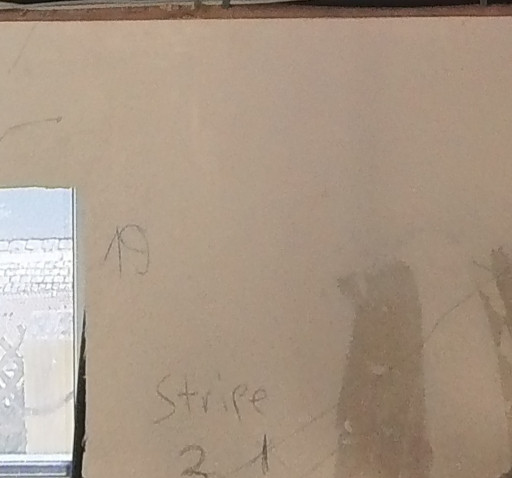 19
Stripe
2 1